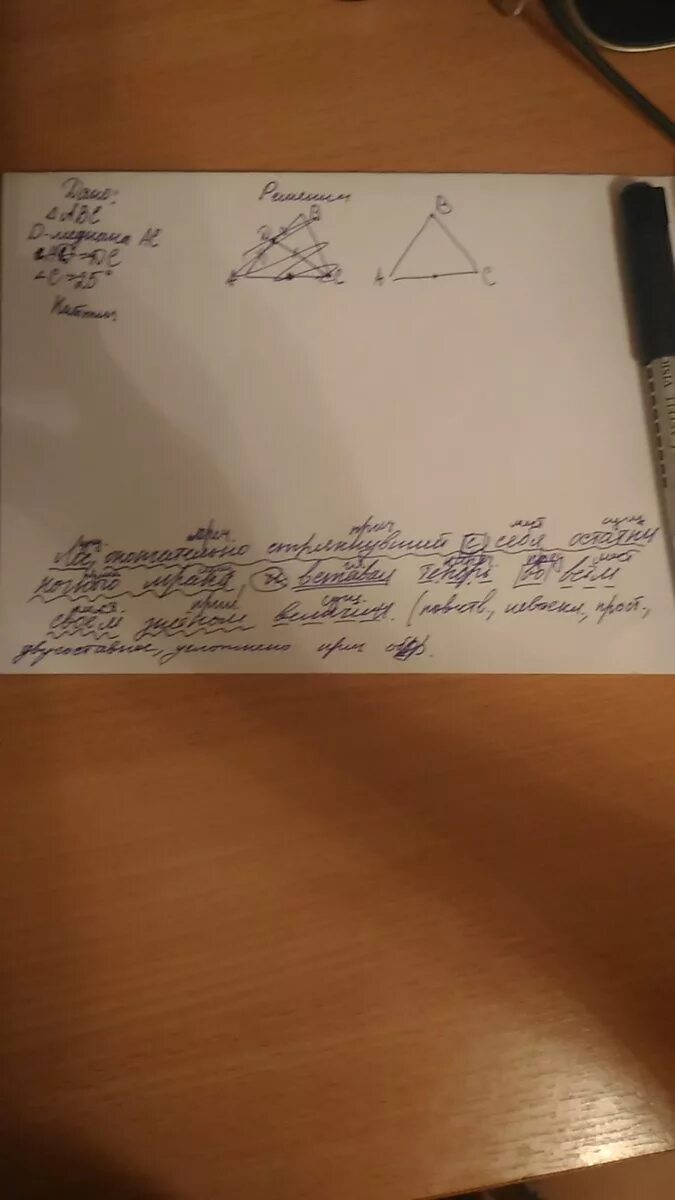 Дано:
△ABC
D-медиана AC
=DC
∠C=25°
Решении
B
D
A
C
B
A
C
сущ. нареч. прич мест сущ
Лес, окончательно стряхнувший с себя остатки
ночного мрака, вставал теперь во всём
мест прил. сущ.
своём величии. (повеств, невоскл, прост,
двусоставное, усложнено прич обор.